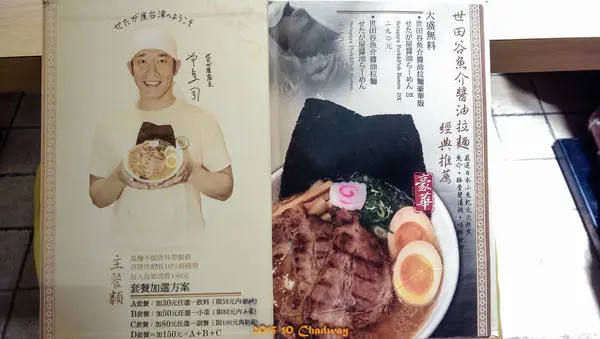 せたが屋台湾へようこそ
主餐類
為響不能烋外帶服務
消費恕酌收10%服務費
每人最低消費180元
套餐加選方案
A套餐：加30元任選一飲料（限50元內飲料）
B套餐：加50元任選一小菜（限80元內小菜）
C套餐：加80元任選一副餐（限100元內副餐）
D套餐＝加150元＝A＋B＋C
世田谷魚介醬油拉麵
經典推薦
豪華
大盛無料
世田谷魚介醬油拉麵豪華版
せたが屋醤油らーめん DX
Setagaya Pork&Fish Ramen DX
二九〇元
世田谷魚介醬油拉麵
せたが屋醤油らーめん
Setagaya Pork&Fish Ramen
2015 10 Chadway